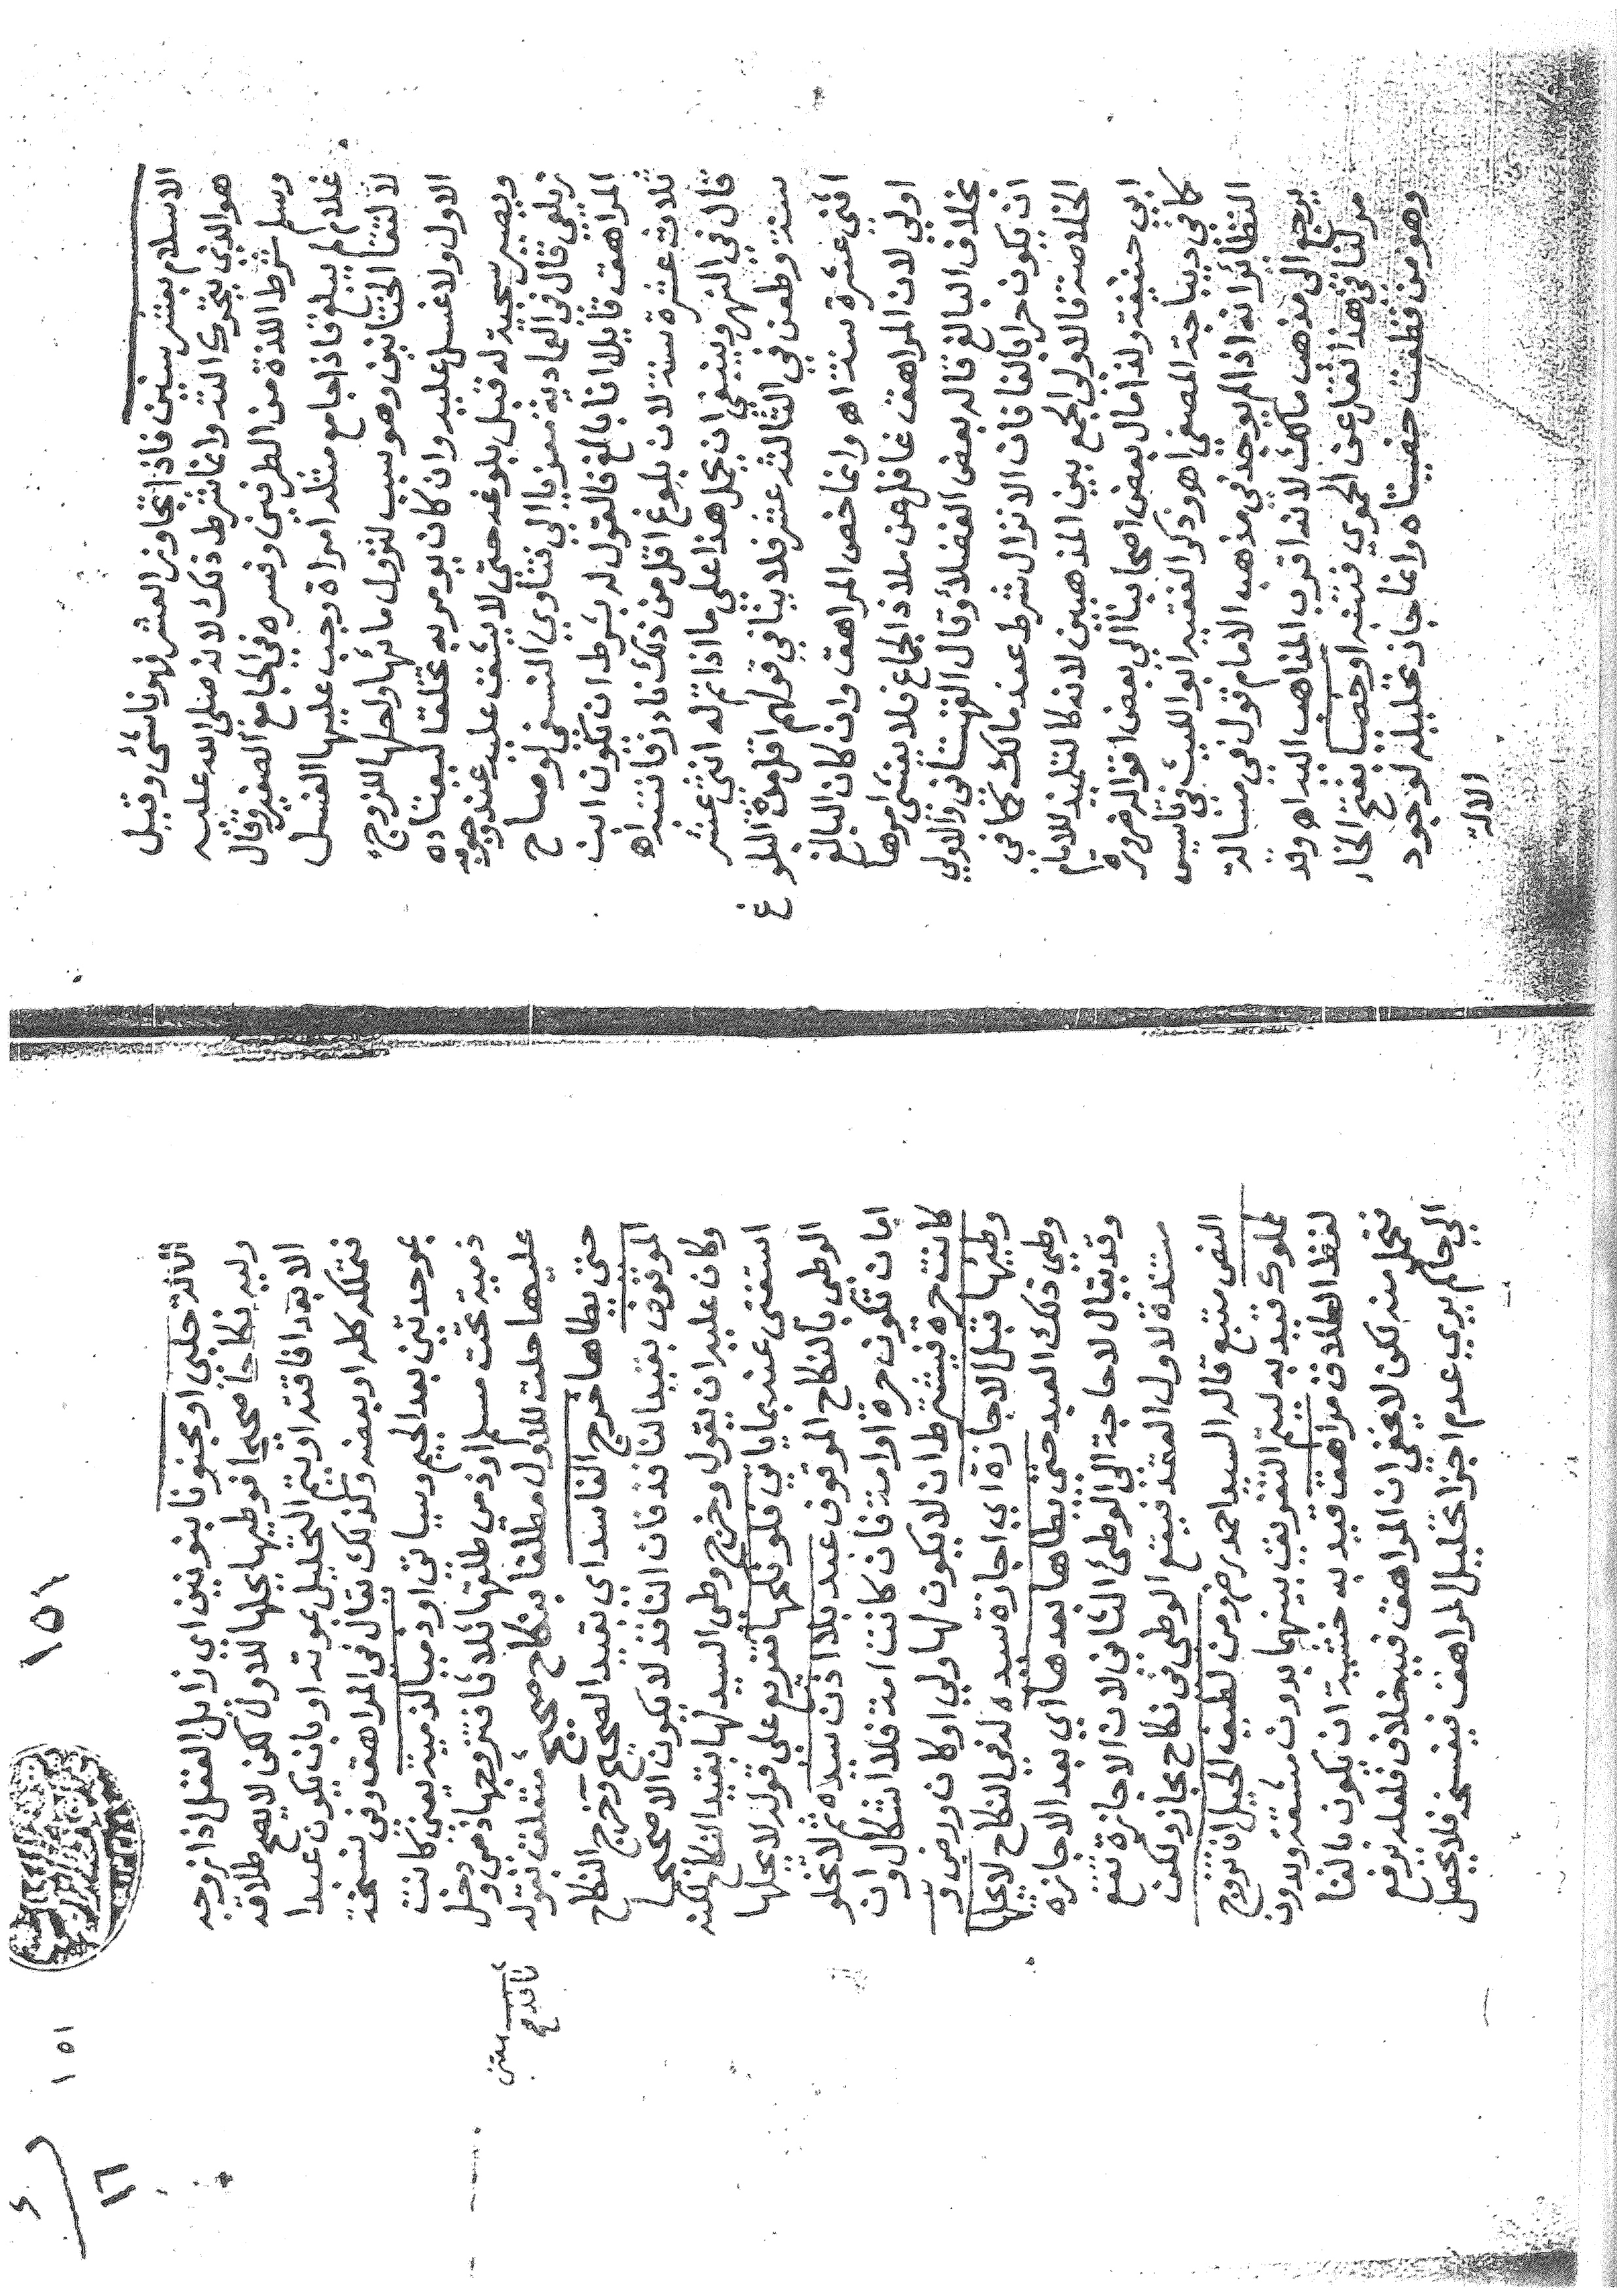 الاسلام بعشر سنين فاذا تجاوز العشر فهو ناشئ وقيل
هو الذي يتحرك التد وانما شرط ذلك لانه صلى الله عليه
وسلم شرط اللذة من الطرفين وفسره في الجامع الصغير وقال
غلام لم يبلغ فاذا جامع مثله امراة وجب عليها الغسل
لالتقا الختانين وهو سبب لنزول مائها ولحلها للزوج
الاول ولا غسل عليه وان كان يومر به تخلقا ليعتاده
ويصير سجية له قبل بلوغه حتى لا يشق عليه عند وجوبه
زيلعي قال في العمادية معزيا الي فتاوي النسفي لو صاح
المراهق قايلا انا بالغ فالقول له بشرط ان تكون ابن
ثلاث عشرة سنة لان بلوغ اقل من ذلك نادر قاتنته اه
قال في النهر وينبغي ان يحمل هذا على ما اذا تم له اثني عشر
سنة وطعن في الثالثة عشر فلا ينافي قولهم اقل مدة البلوغ
اثني عشرة سنة اه وانما خص المراهق وان كان البالغ
اولي لان المراهق غافل عن ملاذ الجماع فلا يفشي امرها
بخلاف البالغ قاله بعض الفضلا وقال القهستاني والاولي
ان يكون حرا بالغا فان الانزال شرط عند مالك كما في
الخلاصة فالاولى الجمع بين المذهبين لانه كالتلميذ للامام
ابي حنيفة ولذا مال بعض اصحابنا الي بعض اقواله ضرورة
كما في ديباجة المصفي اه وذكر الفقيه ابو الليث في تاسيس
النظائر انه اذا لم يوجد في مذهب الامام قول في مسالة
يرجع الى مذهب مالك لانه اقرب المذاهب اليه اه وقد
مر لنا في هذا نقل عن الحموي فتنبه او خصيا بفتح الخا
وهو من قطعت خصيتاه وانما جاز تحليله لوجود
الالة
١٥١
١٥١
١٦
الالة حلبي او مجنونا بنونين اي زايل العقل اذا زوجه
وليه نكاحا صحيحا فوطيها يحلها للاول لكن لا يصح طلاقه
الا بعد افاقته او يتم التحليل بموته او بان يكون عبدا
فتملكه كله او بعضه وكذلك يقال في المراهق وفي نسخة
بوحدتين بعد الجيم وسياتي او ذميا لذمية يعني كانت
ذمية تحت مسلم او ذمي طلقها ثلاثا فتزوجها ذمي ودخل
عليها حلت للاول مطلقا بنكاح صحيح متعلق بقوله
نافذ صح
حتى يطاها خرج الفاسد اي بقيد الصحيح وخرج النكاح
الموقوف بقيد النافذ فان النافذ لا يكون الا صحيحا
وكان عليه ان يقول وخرج وطى السيد لها بقيد النكاح لكنه
استغنى عنه بما ياتي فلو نكحها تفريع على قوله لا يحلها
الوطى بالنكاح الموقوف عبد بلا اذن سيده ثم لا تخلو
اما ان تكون حرة او امة فان كانت امة فلا اشكال وان
كانت حرة فيشترط ان لا يكون لها ولي او كان ورضي و
وطيها قبل الاجازة اي اجازة سيده لذي النكاح لا يحلها
وطي ذلك العبد حتى يطاها بعدها اي بعد الاجازه
وقد يقال لا حاجة الى الوطئ الثاني لان الاجازة تقع
مستندة لاول العقد فيقع الوطي في نكاح مجاز ولكن
النص متبع قاله السيد احمد رض ومن لطيف الحيل ان تزوج
لمملوك قيد به ليتم التفريق بينهما بدون مشقة وبدون
لفظ الطلاق مراهق قيد به خشية ان يكون بالغا
فتحمل منه لكن لا يخفي ان المراهق فيه خلاف فلعله يرفع
الي حاكم يري عدم اجزا تحليل المراهق فيفسخه فلا يحصل